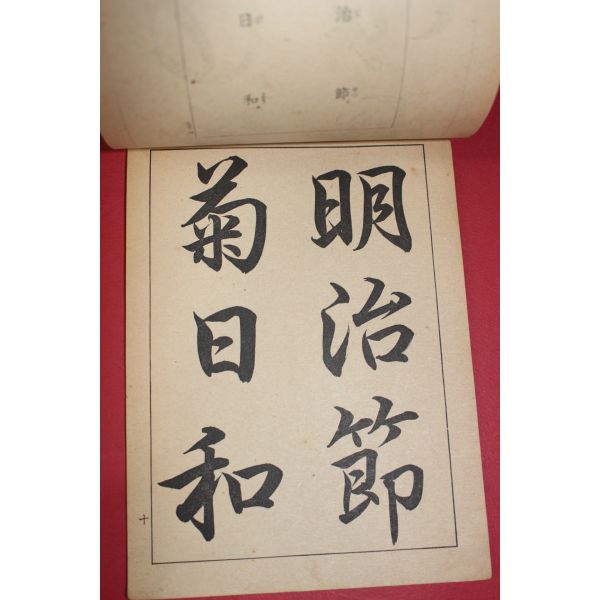 明治節
菊日和
十
治節
日和